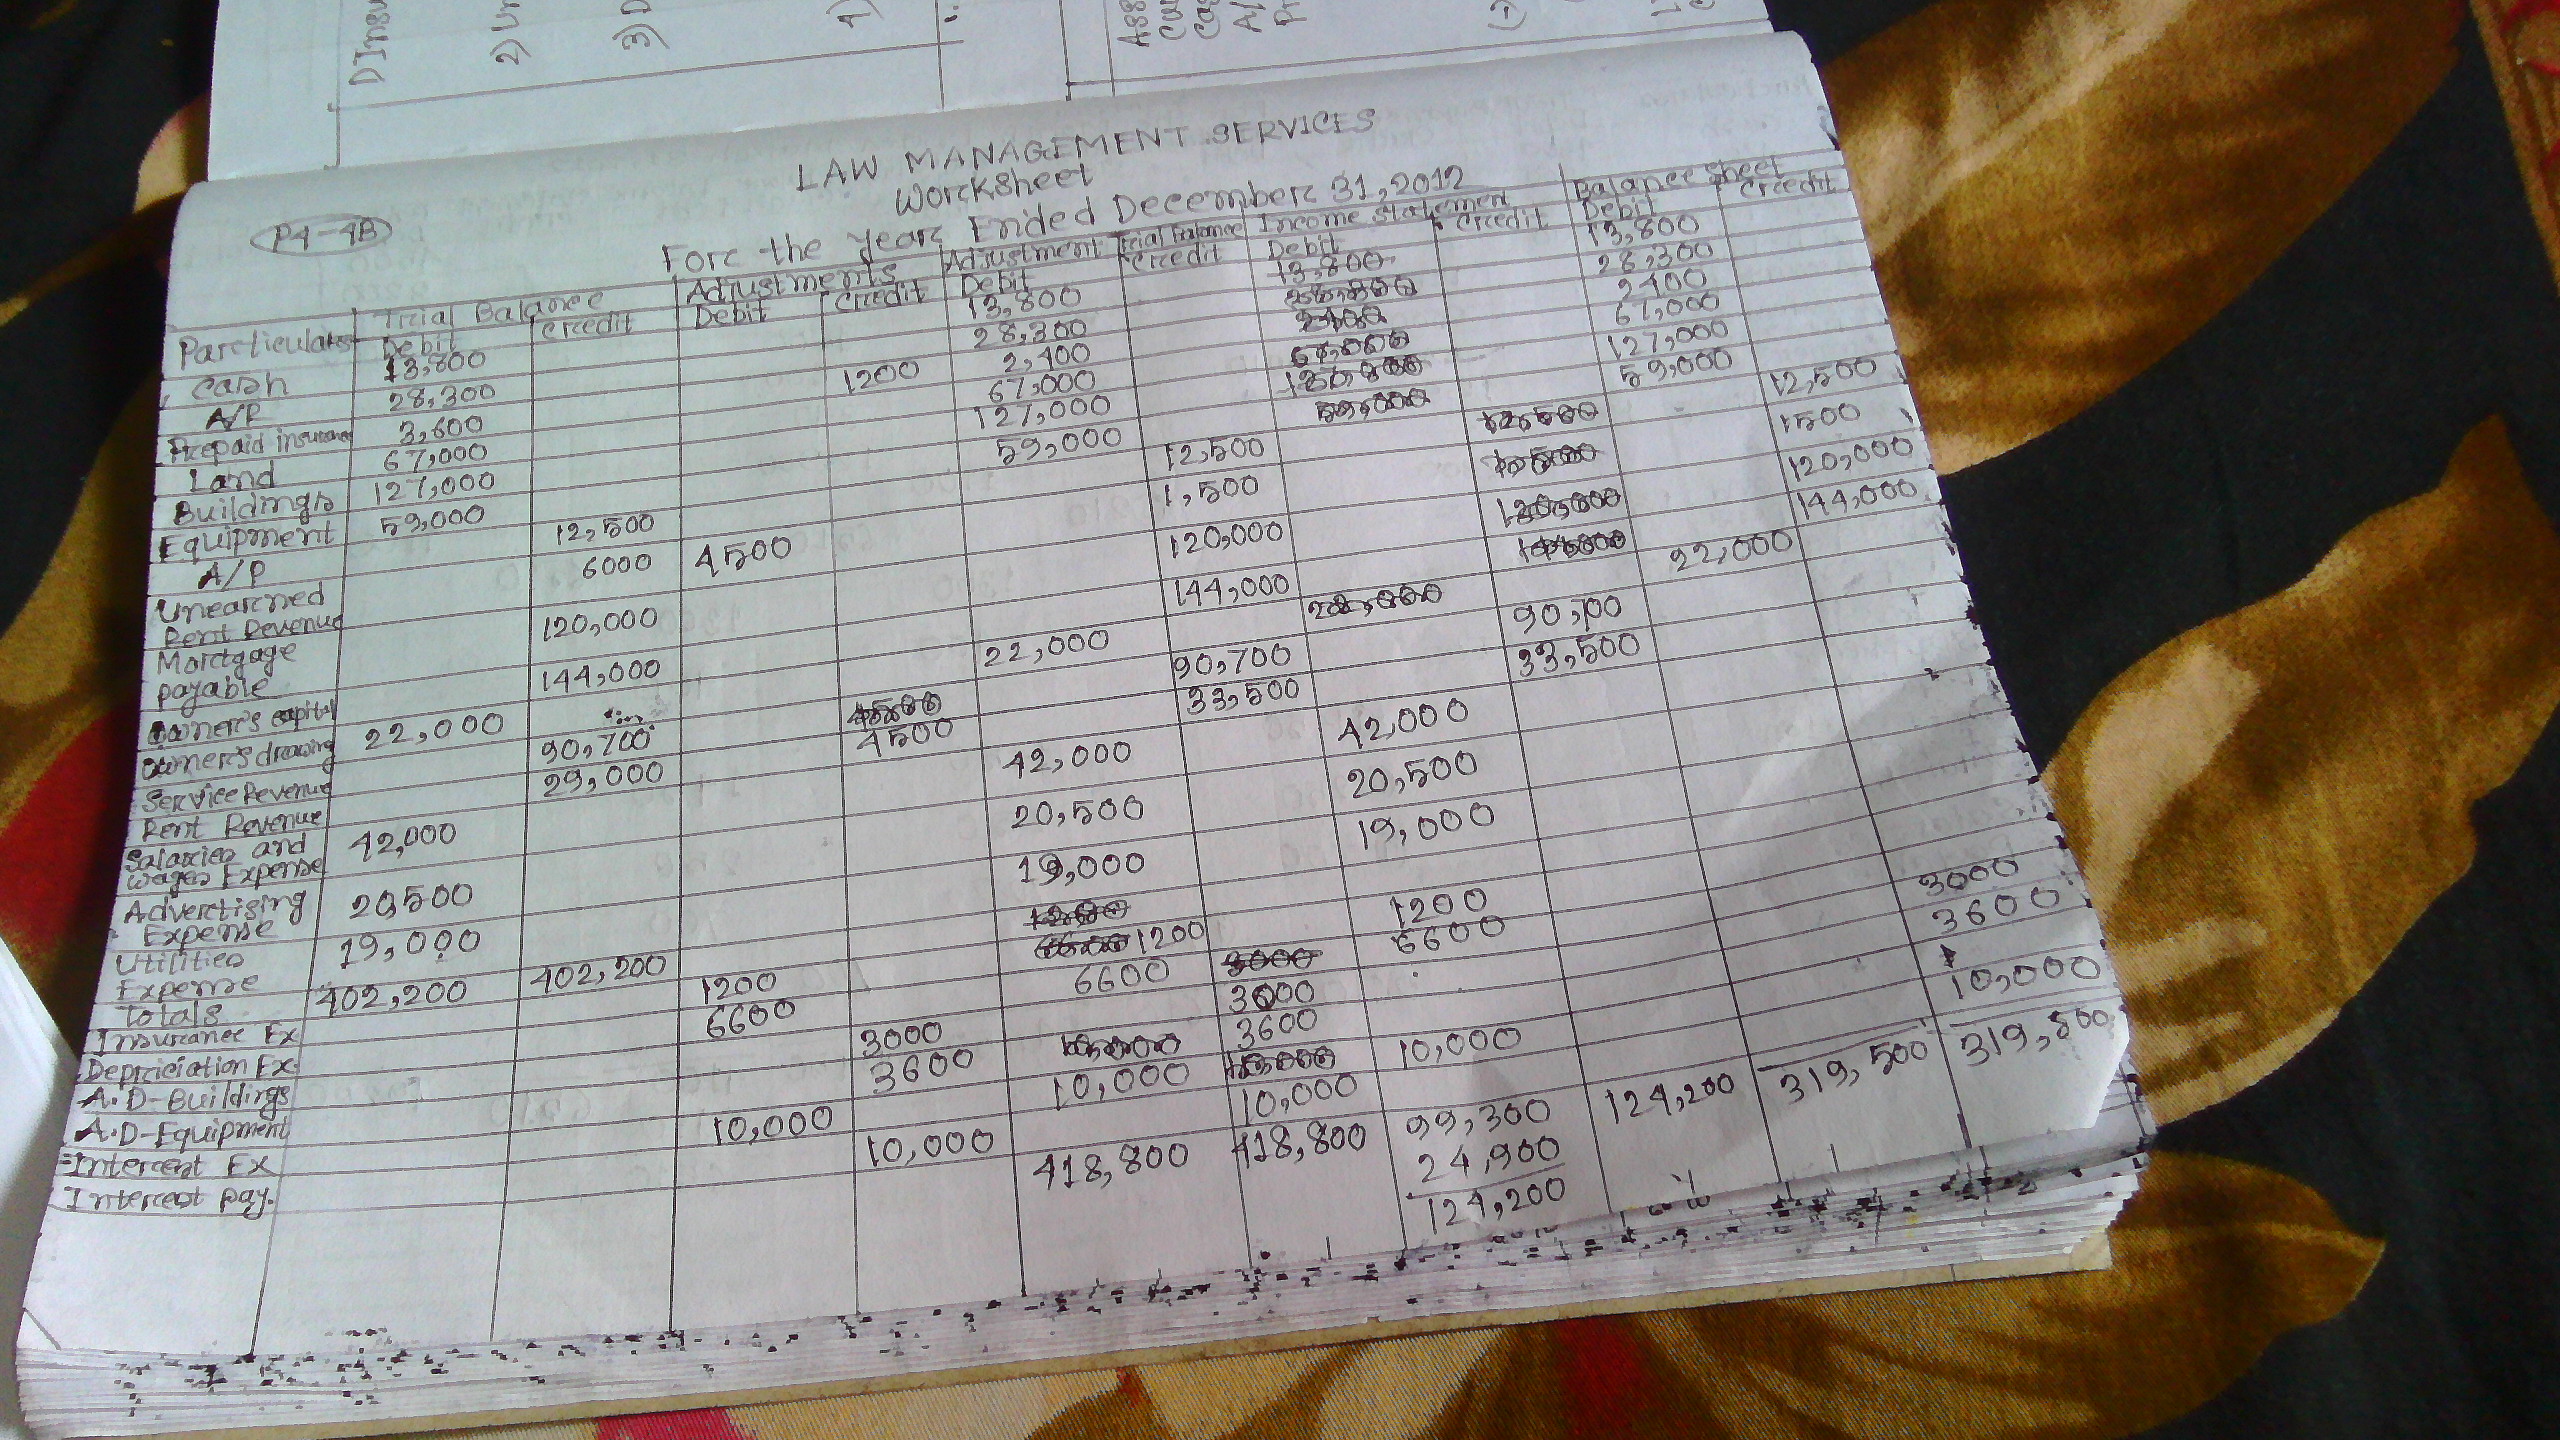 P4-4B
LAW MANAGEMENT SERVICES
Worcksheet
Forc the Yearc Ended Decemberc 31, 2012
Particulars | Trial Balance | Adjustments | Adjustment Trial Balance | Income Statement | Balance Sheet
Debit Credit Debit Credit Debit Credit Debit Credit Debit Credit
Cash 13,800 13,800 13,800 13,800
A/R 28,300 28,300 28,300
Prepaid insurance 3,600 1200 2,400 2400
Land 67,000 67,000 67,000
Buildings 127,000 127,000 127,000
Equipment 59,000 59,000 59,000 59,000
A/P 12,500 12,500 12,500
Unearcned
Rent Revenue 6000 4500 1,500 1500
Morctgage
payable 120,000 120,000 120,000
Owner's capital 144,000 144,000 144,000
Owner's drawing 22,000 22,000 22,000
Service Revenue 90,700 90,700 90,700
Rent Revenue 29,000 4500 33,500 33,500
Salaries and
wages Expense 42,000 42,000 42,000
Advertising
Expense 20,500 20,500 20,500
Utilities
Expense 19,000 19,000 19,000
Totals 402,200 402,200
Insurance Ex 1200 1200 1200
Depriciation Ex. 6600 6600 6600
A.D-Buildings 3000 3000 3000
A.D-Equipment 3600 3600 3600
Interest Ex 10,000 10,000 10,000
Interest pay. 10,000 10,000 10,000
418,800 418,800 99,300 124,200 319,500 319,500
24,900
124,200